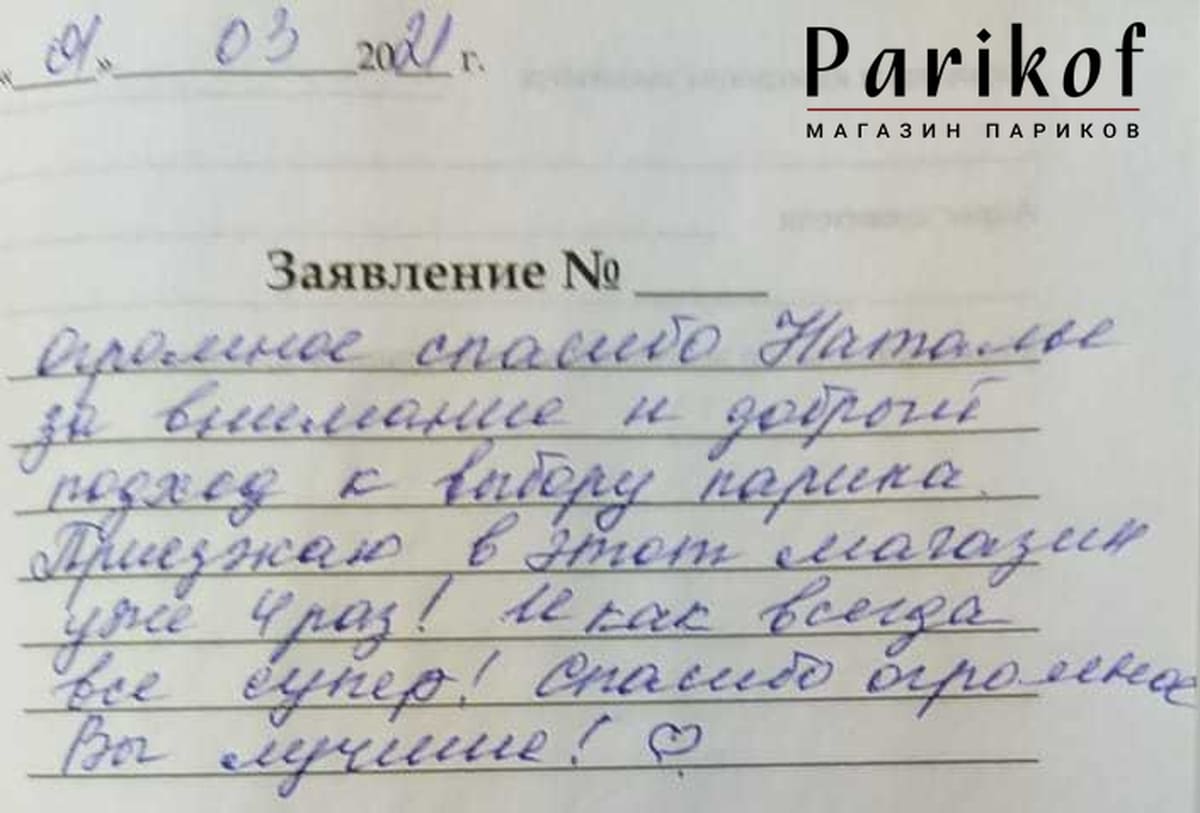 « 01 » 03 2021 г.
Parikof
МАГАЗИН ПАРИКОВ
Заявление №
Огромное спасибо Наталье
за внимание и добрый
подход к выбору парика.
Приезжаю в этот магазин
уже 4 раз! И как всегда
все супер! Спасибо огромное
Вы лучшие! ♡